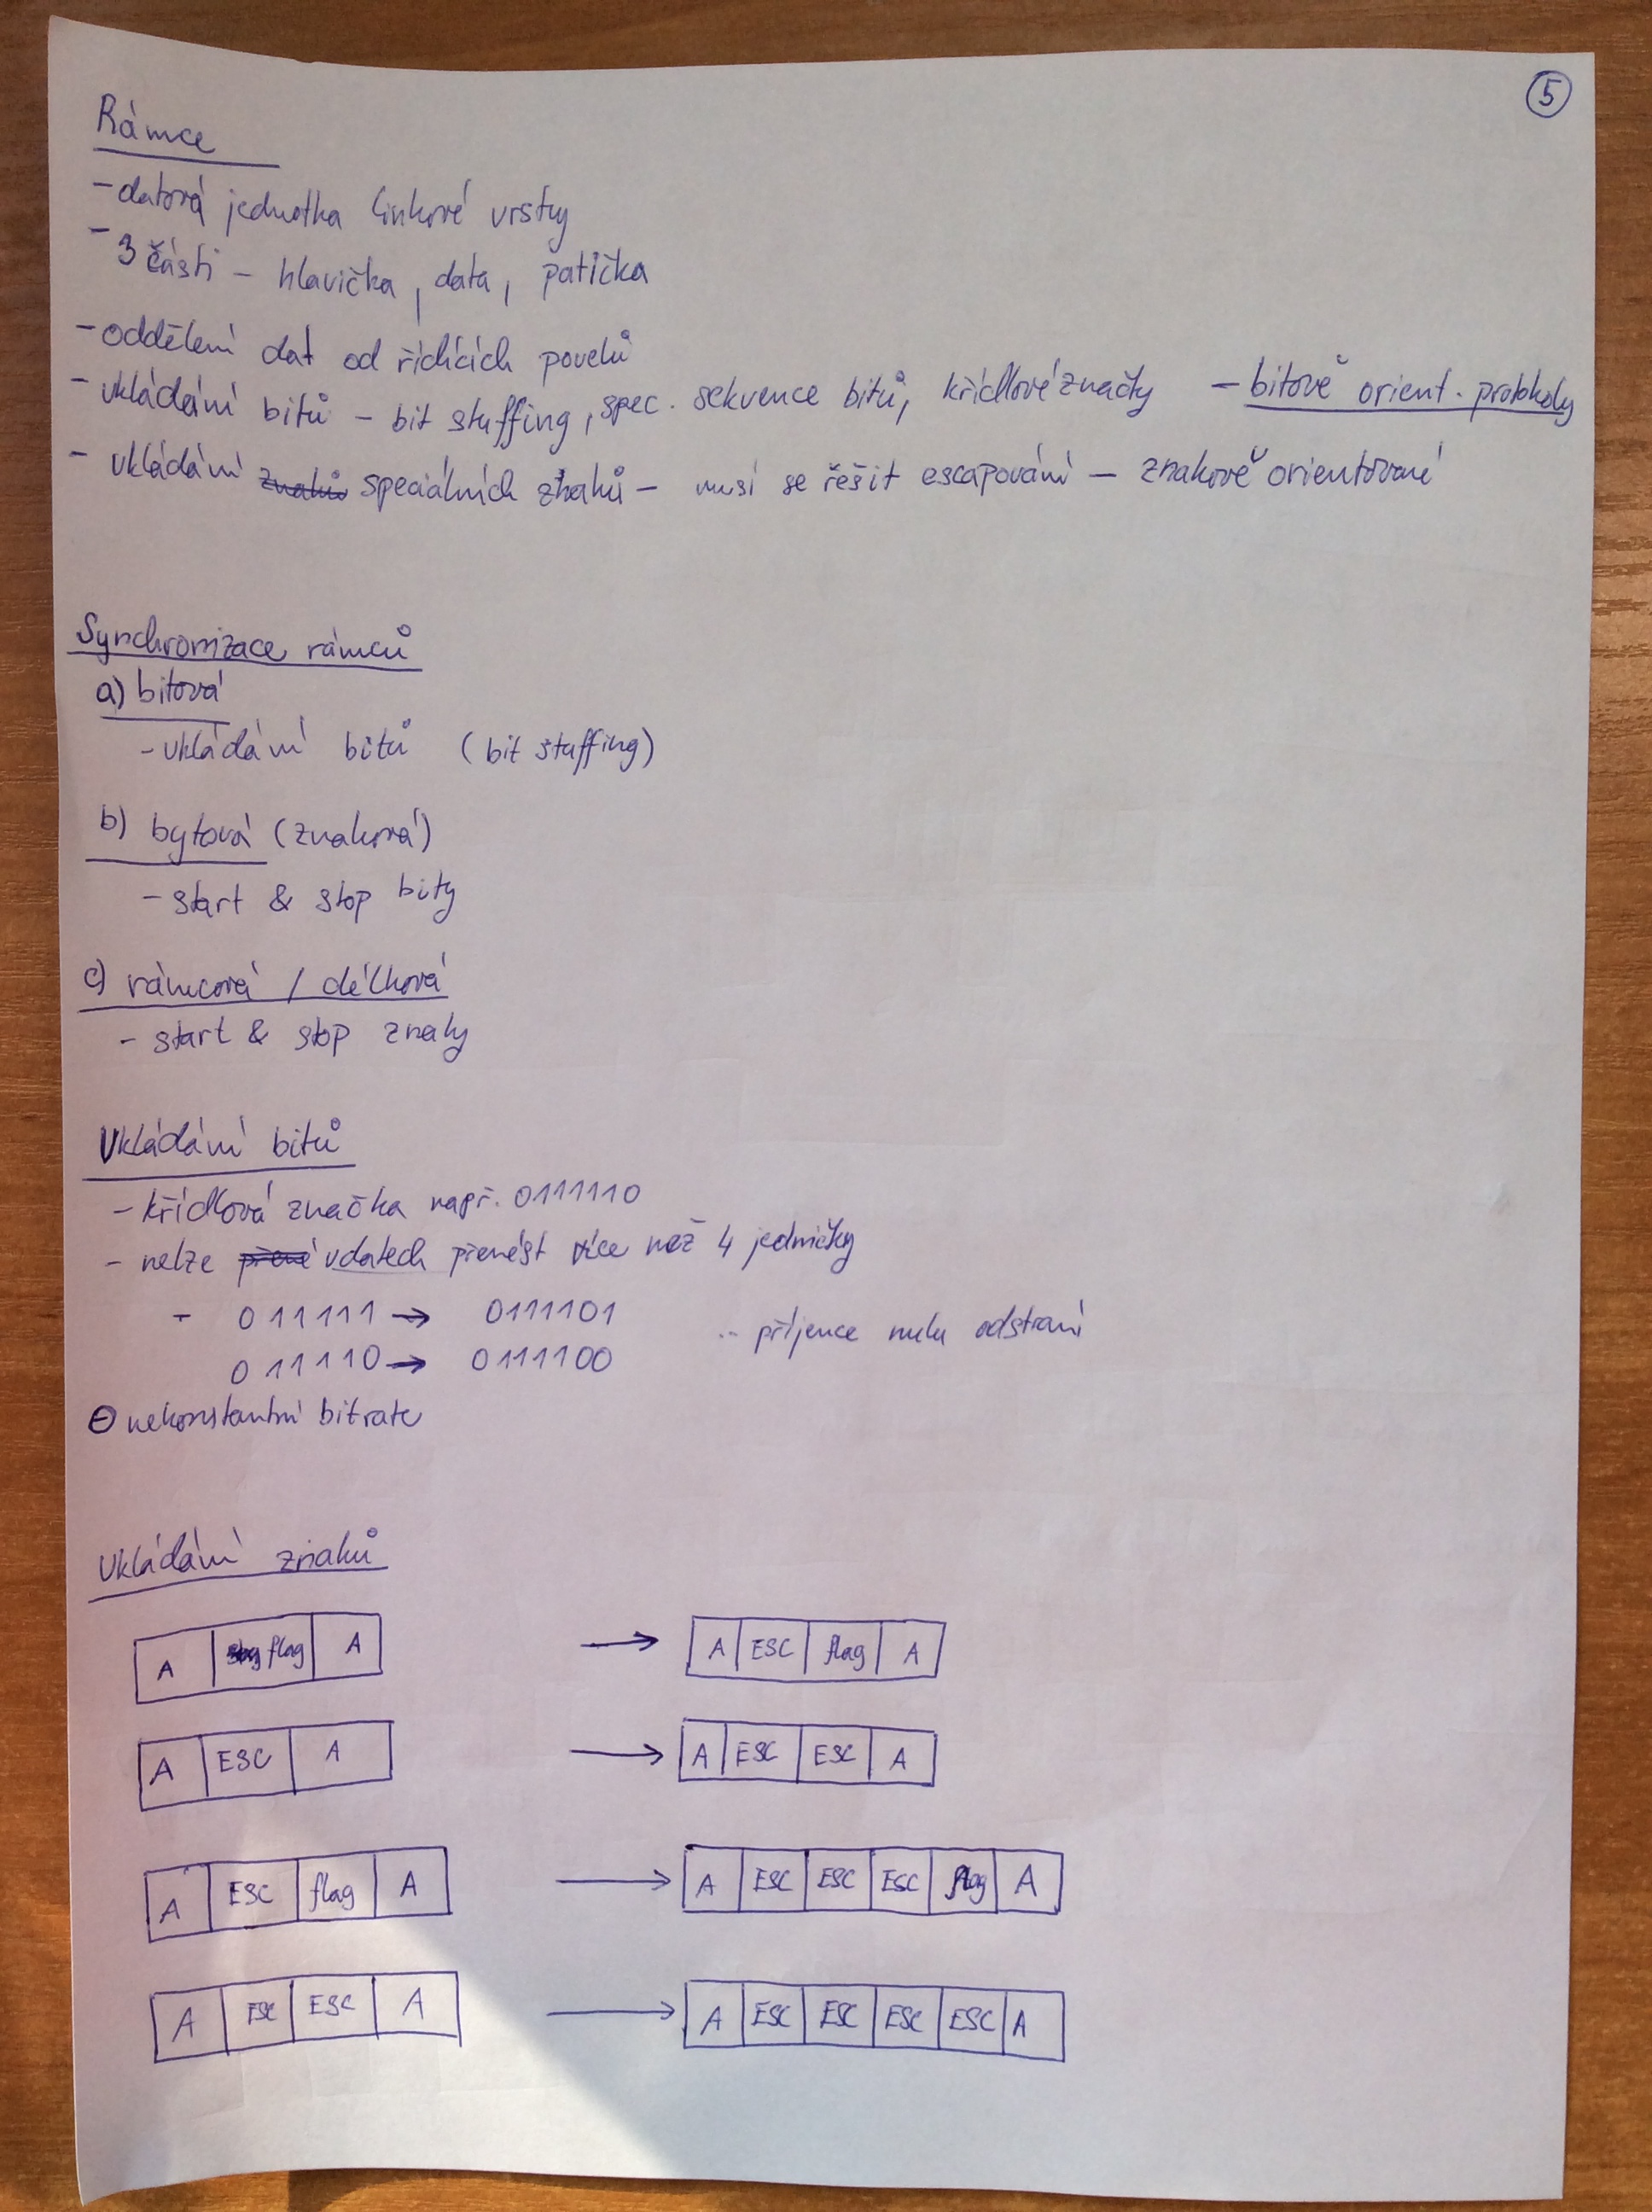 5
Rámce
- datová jednotka linkové vrstvy
- 3 části - hlavička, data, patička
- oddělení dat od řídících povelů
- vkládání bitů - bit stuffing, spec. sekvence bitů, křídlové značky - bitově orient. protokoly
- vkládání znaků speciálních znaků - musí se řešit escapování - znakově orientované
Synchronizace rámců
a) bitová
- vkládání bitů (bit stuffing)
b) bytová (znaková)
- start & stop bity
c) rámcová / délková
- start & stop znaky
Vkládání bitů
- křídlová značka např. 0111110
- nelze v datech přenést více než 4 jedničky
- 011111 → 0111101
011110 → 0111100 .. příjemce nulu odstraní
⊖ nekonstantní bitrate
Vkládání znaků
A flag A → A ESC flag A
A ESC A → A ESC ESC A
A ESC flag A → A ESC ESC ESC flag A
A ESC ESC A → A ESC ESC ESC ESC A